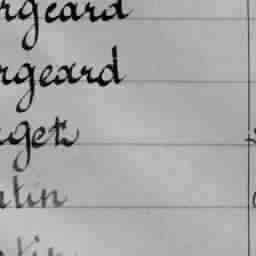 rgeard
rgeard
rget
tin
tin